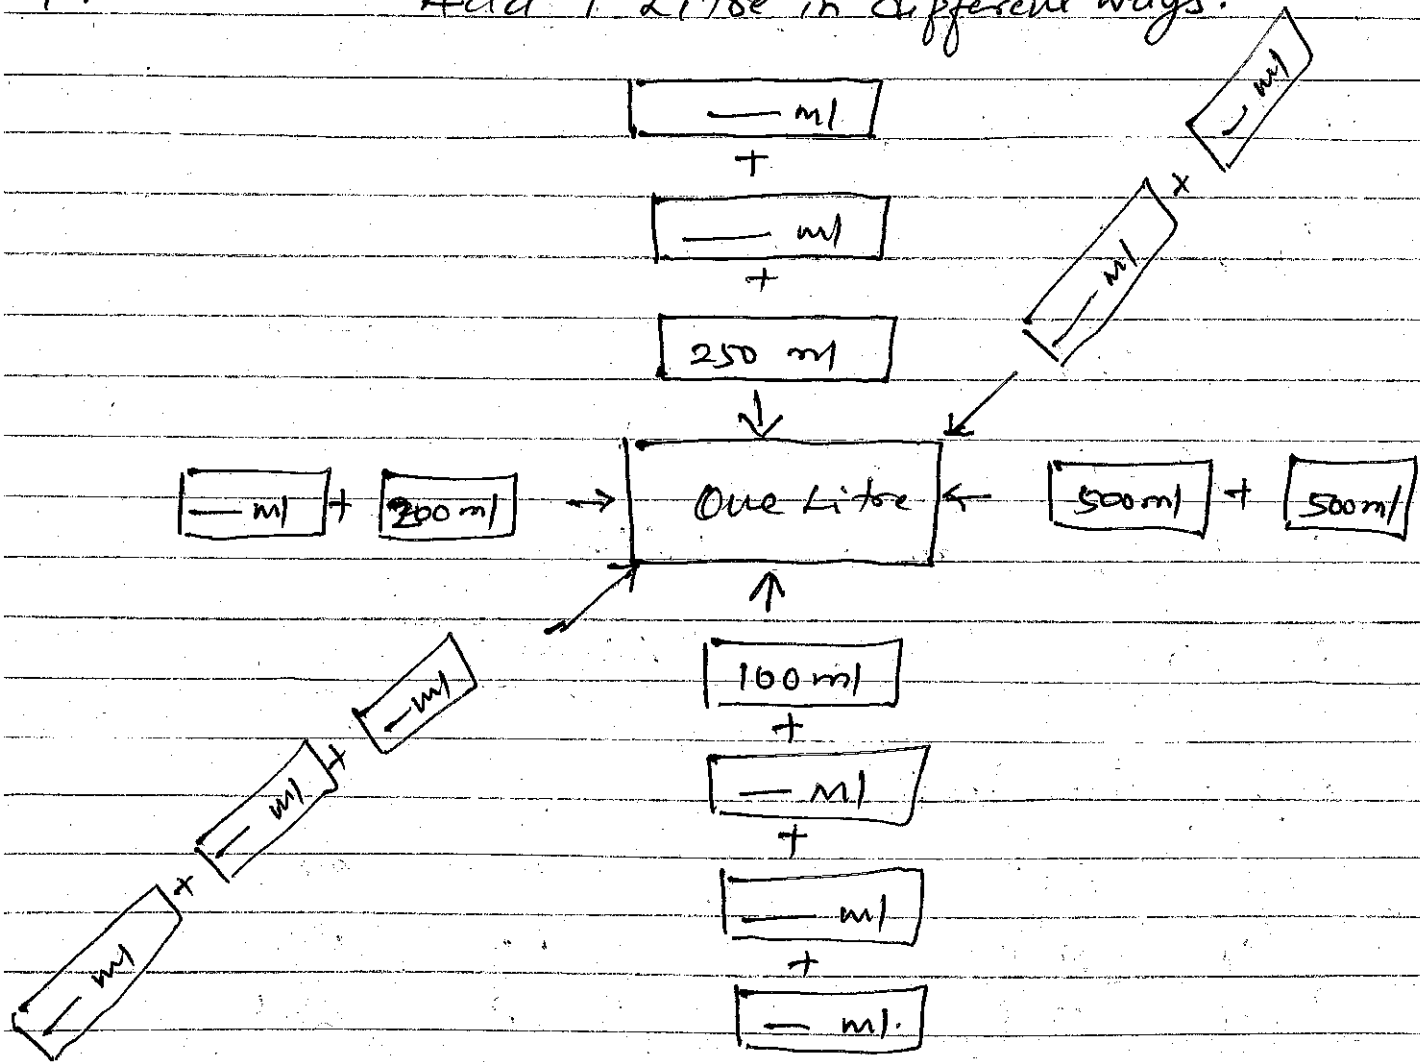 Add 1 Litre in different ways.
— ml
+
— ml
+
250 ml
— ml + — ml
— ml + 200 ml → One Litre ← 500 ml + 500 ml
100 ml
+
— ml
+
— ml
+
— ml.
— ml + — ml + — ml